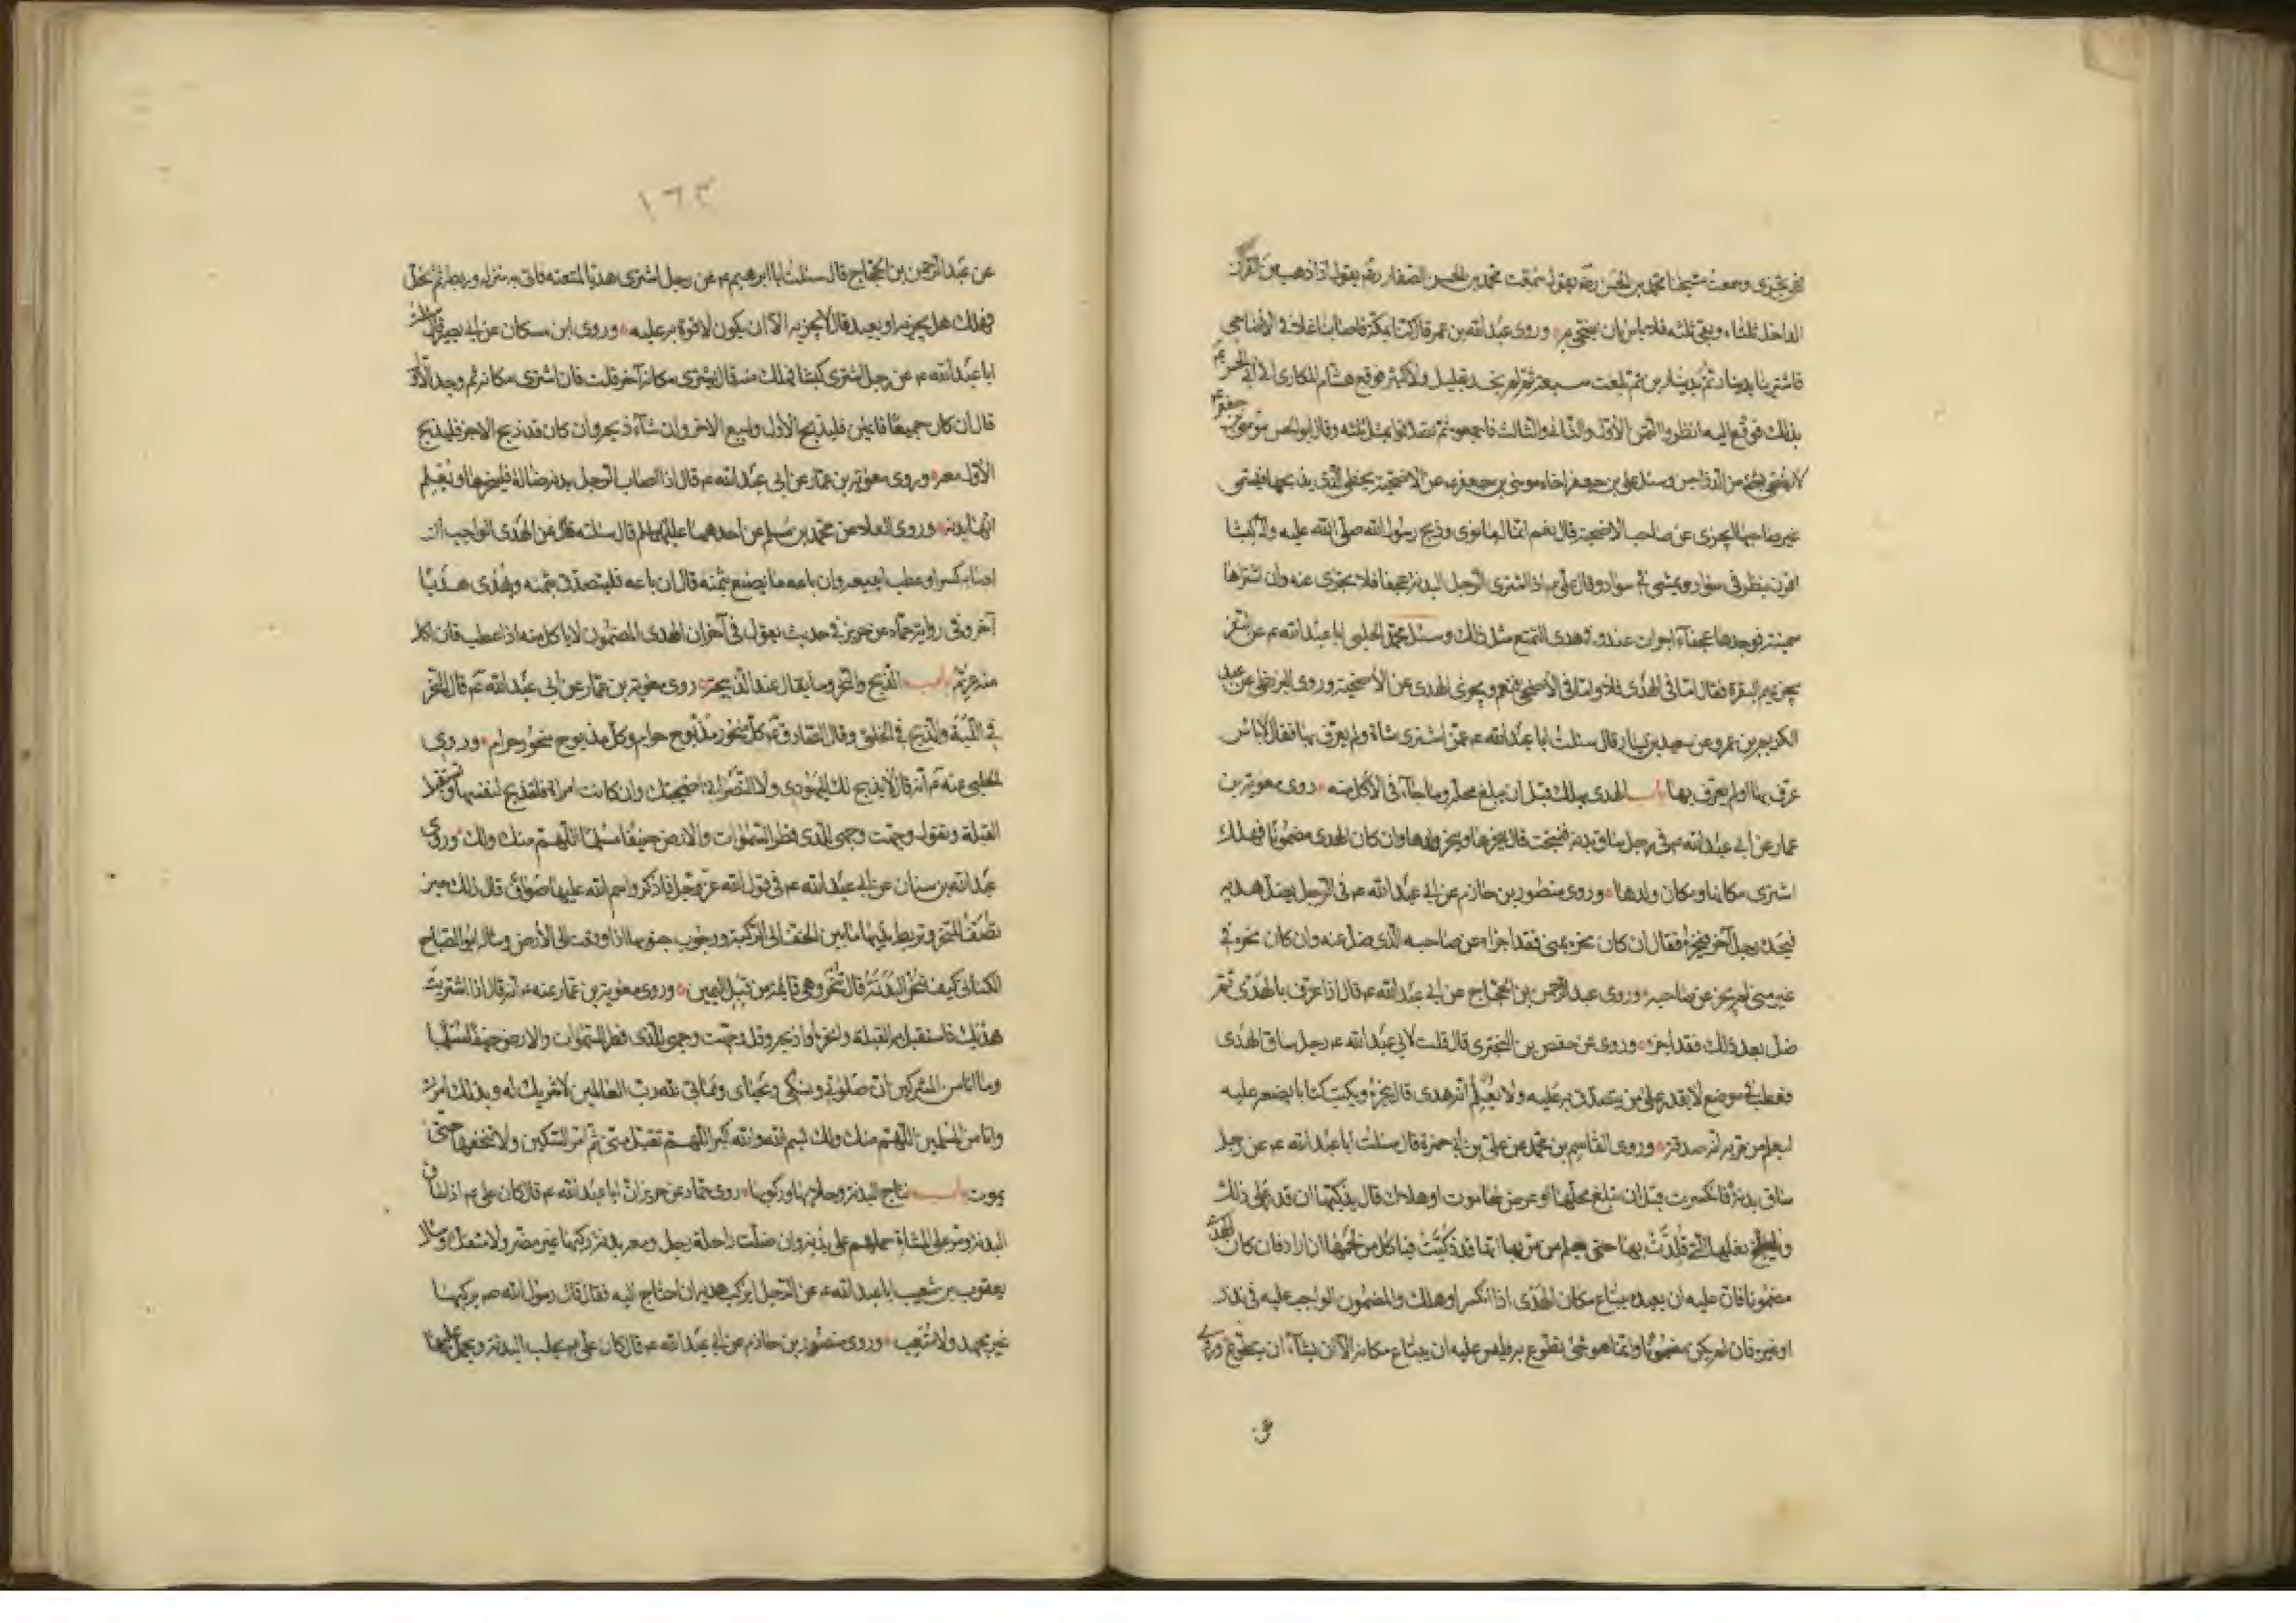 لم يجزى وسمعت شيخنا محمد بن الحسن رضه يقول سمعت محمد بن الحسن الصفار رضه يقول اذا ذهب من القرن
الداخل ثلثاه وبقى ثلثه فلا باس ان يضحى به وروى عبد الله بن عمر قال كنا بمكة فاصابنا غلاء في الاضاحي
فاشترينا بدينار ثم بدينارين ثم بلغت سبعة ثم لم نجد بقليل ولا كثير فوقع هشام المكارى الى ابى الحسن ع
بذلك فوقع اليه انظروا الثمن الاول والثاني والثالث فاجمعوه ثم تصدقوا بمثل ثلثه وقال ابو الحسن موسى بن جعفر ع
لا يضحى بشئ من الدواجن وسئل على بن جعفر اخاه موسى بن جعفر ع عن الاضحية يخطى الذى يذبحها فيسمى
غير صاحبها ايجزى عن صاحب الاضحية قال نعم انما له ما نوى وذبح رسول الله صلى الله عليه وآله كبشا
اقرن ينظر في سواد ويمشى في سواد وقال على ع اذا اشترى الرجل البدنة عجفا فلا يجزى عنه وان اشتراها
سمينة فوجدها عجفاء اجزات عنه وفي هدى التمتع مثل ذلك وسئل محمد الحلبي ابا عبد الله ع عن النفر
يجزيهم البقرة فقال اما في الهدى فلا واما في الاضحى فنعم ويجزى الهدى عن الاضحية وروى البزنطى عن عبد
الكريم بن عمرو عن سعيد بن يسار قال سئلت ابا عبد الله ع عمن اشترى شاة ولم يعرف بها فقال لا باس
عرف بها او لم يعرف بها باب الهدى يهلك قبل ان يبلغ محله وما جاء في الاكل منه روى معوية بن
عمار عن ابي عبد الله ع في رجل ساق بدنة فنتجت قال ينحرها وينحر ولدها وان كان الهدى مضمونا فهلك
اشترى مكانها ومكان ولدها وروى منصور بن حازم عن ابي عبد الله ع في الرجل يضل هديه
فيجده رجل آخر فينحره فقال ان كان نحره بمنى فقد اجزا عن صاحبه الذى ضل عنه وان كان نحره في
غير منى لم يجز عن صاحبه وروى عبد الرحمن بن الحجاج عن ابي عبد الله ع قال اذا عرف بالهدى ثم
ضل بعد ذلك فقد اجزء وروى عن حفص بن البخترى قال قلت لابي عبد الله ع رجل ساق الهدى
فعطب في موضع لا يقدر على من يتصدق به عليه ولا يعلم انه هدى قال ينحره ويكتب كتابا يضعه عليه
ليعلم من مر به انه صدقة وروى القاسم بن محمد عن على بن ابي حمزة قال سئلت ابا عبد الله ع عن رجل
ساق بدنة فانكسرت قبل ان تبلغ محلها او عرض لها موت او هلاك قال يذكيها ان قدر على ذلك
ويلطخ نعلها التي قلدت بها حتى يعلم من مر بها انها قد ذكيت فياكل من لحمها ان اراد فان كان الهدى
مضمونا فان عليه ان يعيده يبتاع مكان الهدى اذا انكسر او هلك والمضمون الواجب عليه في نذر
او غيره فان لم يكن مضمونا وانما هو شئ تطوع به فليس عليه ان يبتاع مكانه الا ان يشاء ان يتطوع وروى
١٦٣
عن عبد الرحمن بن الحجاج قال سئلت ابا ابرهيم ع عن رجل اشترى هديا لمتعته فاتى به منزله وربطه ثم انحل
فهلك هل يجزيه او يعيد قال لا يجزيه الا ان يكون لا قوة به عليه وروى ابن مسكان عن ابي بصير قال سئلت
ابا عبد الله ع عن رجل اشترى كبشا فهلك منه قال يشترى مكانه آخر قلت فان اشترى مكانه ثم وجد الاول
قال ان كان جميعا قائمين فليذبح الاول وليبع الاخر وان شاء ذبحه وان كان قد ذبح الاخر فليذبح
الاول معه وروى معوية بن عمار عن ابي عبد الله ع قال اذا اصاب الرجل بدنة ضالة فلينحرها ويعلم
انها بدنة وروى العلاء عن محمد بن مسلم عن احدهما عليهما السلام قال سئلته عن الهدى الواجب ان
اصابه كسر او عطب ايبيعه وان باعه ما يصنع بثمنه قال ان باعه فليتصدق بثمنه ويهدى هديا
آخر وفي رواية حماد عن حريز في حديث يقول في آخره ان الهدى المضمون لا ياكل منه اذا عطب فان اكل
منه غرم باب الذبح والنحر وما يقال عند الذبيحة روى معوية بن عمار عن ابي عبد الله ع قال النحر
في اللبة والذبح في الحلق وقال الصادق ع كل منحور مذبوح حرام وكل مذبوح منحور حرام وروى
الحلبي عنه ع انه قال لا يذبح لك اليهودى ولا النصراني اضحيتك وان كانت امراة فلتذبح لنفسها وتستقبل
القبلة وتقول وجهت وجهى للذى فطر السموات والارض حنيفا مسلما اللهم منك ولك وروى
عبد الله بن سنان عن ابي عبد الله ع في قول الله عز وجل فاذكروا اسم الله عليها صواف قال ذلك حين
تصف للنحر وتربط يديها ما بين الخف الى الركبة ووجوب جنوبها اذا وقعت الى الارض وساله ابو الصباح
الكناني كيف تنحر البدنة قال تنحر وهي قائمة من قبل اليمين وروى معوية بن عمار عنه ع انه قال اذا اشتريت
هديك فاستقبل به القبلة وانحره او اذبحه وقل وجهت وجهى للذى فطر السموات والارض حنيفا مسلما
وما انا من المشركين ان صلوتي ونسكى ومحياى ومماتى لله رب العالمين لا شريك له وبذلك امرت
وانا من المسلمين اللهم منك ولك بسم الله والله اكبر اللهم تقبل منى ثم امر السكين ولا تنخعها حتى
يموت باب نتاج البدنة وحلابها وركوبها روى حماد عن حريز ان ابا عبد الله ع قال كان على ع اذا ساق
البدنة ومر على المشاة حملهم على بدنه وان ضلت راحلة رجل ومعه بدنة ركبها غير مضر ولا مثقل وسال
يعقوب بن شعيب ابا عبد الله ع عن الرجل ايركب هديه ان احتاج اليه فقال قال رسول الله ص يركبها
غير مجهد ولا متعب وروى منصور بن حازم عن ابي عبد الله ع قال كان على ع يحلب البدنة ويحمل عليها